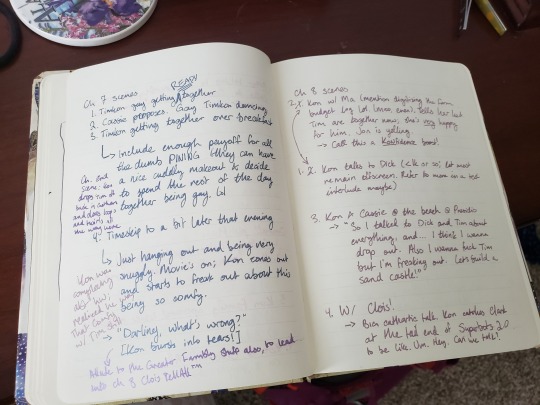 Ch 7 scenes
READY
1. TimKon gay getting together
2. Cassie proposes. Gay TimKon dancing
3. TimKon getting together over breakfast
↳ Include enough payoff for all
the dumb PINING (they can have
a nice cuddly makeout & decide
to spend the rest of the day
together being gay.
Ch. end
scene: Kon
drops Tim off
back in Gotham
and does loops
and twirls all
the way home
4. Timeskip to a bit later that evening
↳ Just hanging out and being very
snuggly. Movie's on; Kon zones out
and starts to freak out about this
being so comfy.
Kon was
complaining
abt how
realized he was
w/ TTT
"Darling, what's wrong?"
[Kon bursts into tears!]
Allude to the Greater Family Stuff also, to lead
into ch 8 Clois TellAll™
Ch 8 scenes
2. 1. Kon w/ Ma (mention digitizing the farm
budget log Lot loves, Tells her
Tim are together now; she's very happy
for him. Jon is yelling
→ Call this a Konfidence boost!
1. 2. Kon talks to Dick (<1k or so) let most
remain offscreen. Refer to mom in a ted
interlude maybe)
3. Kon & Cassie @ the beach @ Presidio
→ "So I talked to Dick and Tim about
everything, and... I think I wanna
drop out. Also I wanna date Tim
but I'm freaking out. Let's build a
sand castle!"
4. W/ Clois!
→ Big cathartic talk. Kon catches Clark
at the tail end of Superbots 2.0
to be like. Um. Hey. Can we talk?